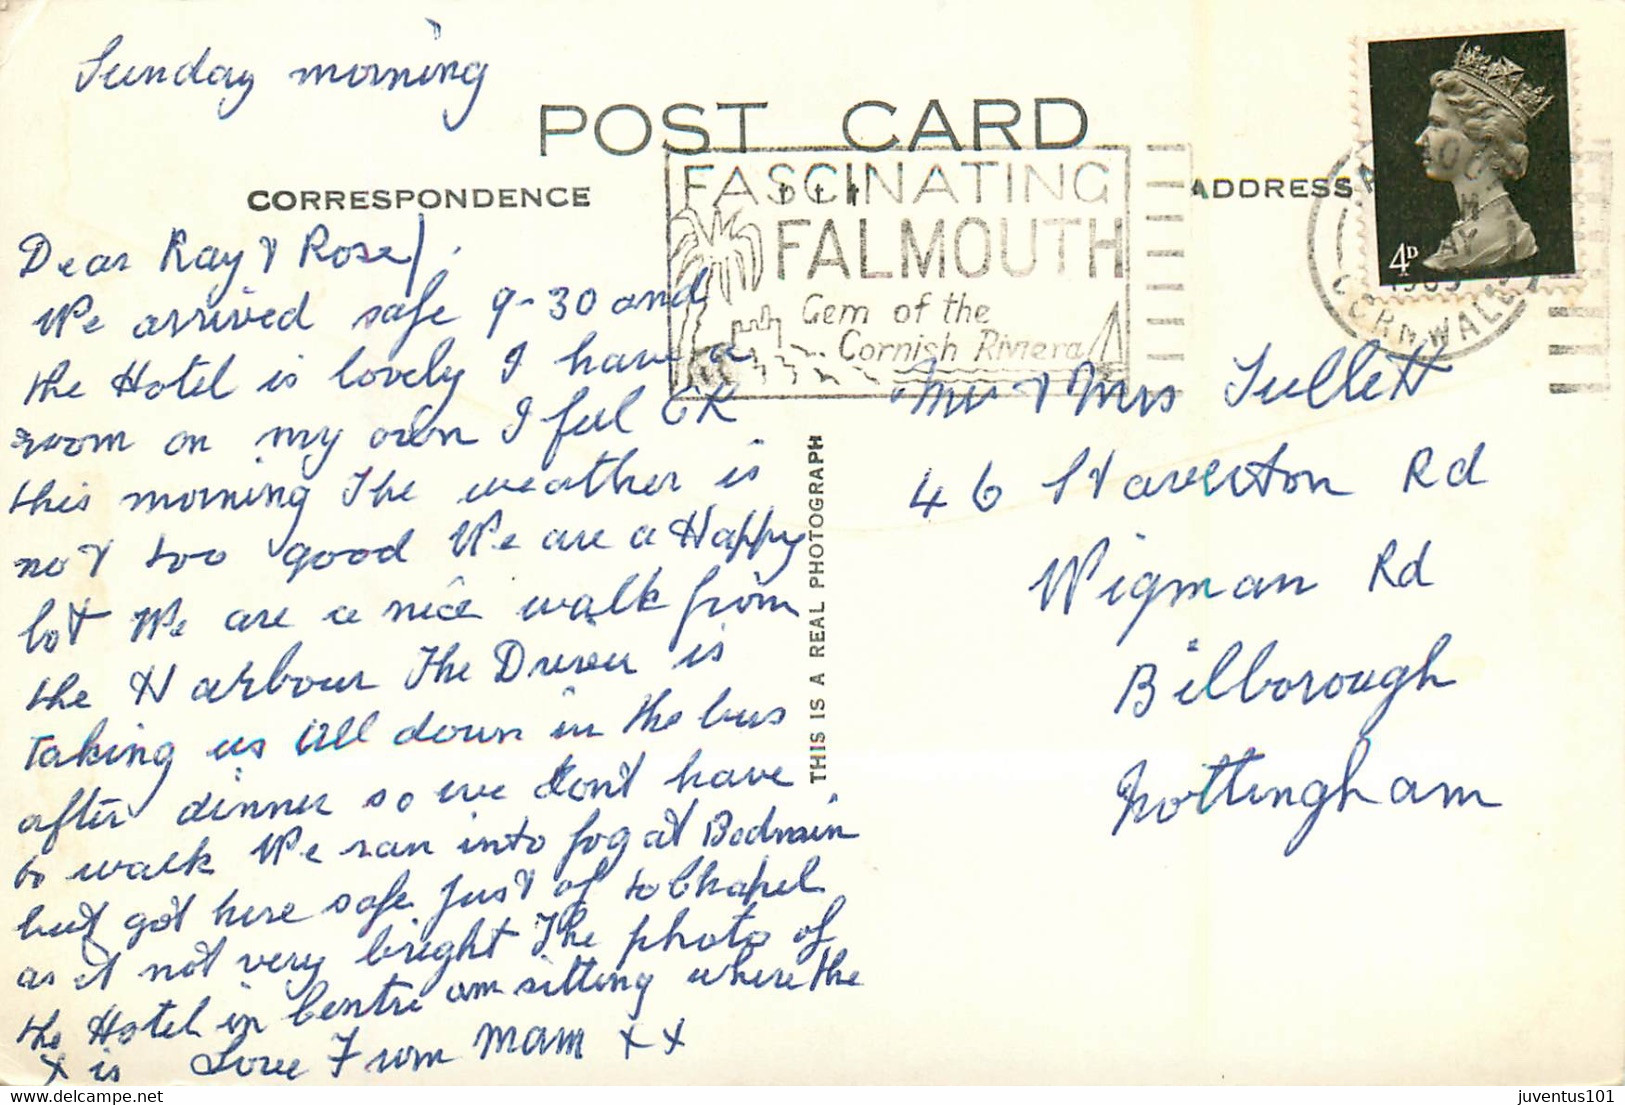 Sunday morning
POST CARD
CORRESPONDENCE
ADDRESS
FASCINATING
FALMOUTH
Gem of the
Cornish Riviera
CORNWALL
4D
Dear Ray & Rose,
We arrived safe 9-30 and
the Hotel is lovely I have a
room on my own I feel OK
this morning The weather is
not too good We are a Happy
lot We are a nice walk from
the Harbour The Driver is
taking us all down in the bus
after dinner so we don't have
to walk We ran into fog at Bodmin
but got here safe Just of to Chapel
as it not very bright The photo of
the Hotel in Centre am sitting where the
x is Love From Mam x x
THIS IS A REAL PHOTOGRAPH
Mr & Mrs Tullett
46 Staverton Rd
Wigman Rd
Bilborough
Nottingham
delcampe.net
juventus101